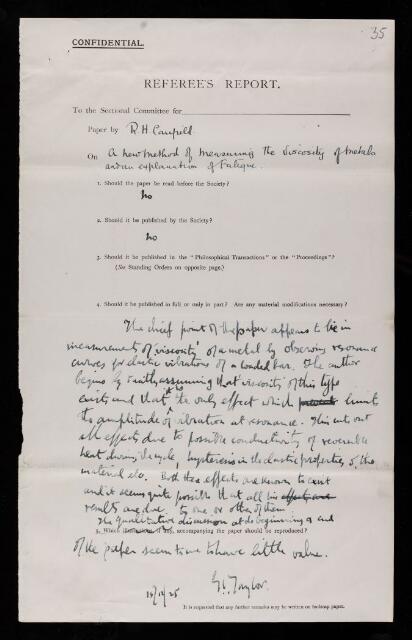 35
CONFIDENTIAL.
REFEREE'S REPORT.
To the Sectional Committee for
Paper by R. H. Canfield
On A new method of measuring the Viscosity of metals
and an explanation of Fatigue.
1. Should the paper be read before the Society?
No
2. Should it be published by the Society?
No
3. Should it be published in the "Philosophical Transactions" or the "Proceedings"?
(See Standing Orders on opposite page.)
4. Should it be published in full or only in part? Are any material modifications necessary?
The chief point of the paper appears to lie in
measurements of 'viscosity' of a metal by observing resonance
curves for elastic vibrations of a loaded bar. The author
begins by assuming that 'viscosity' of this type
exists and that it is the only effect which limits
the amplitude of vibration at resonance. This cuts out
all effects due to possible conductivity of reversible
heat during the cycle, hysteresis in the elastic properties of the
material etc. Both these effects are known to exist
and it seems quite possible that all his
results are due to one or other of them.
The qualitative discussion at the beginning & end
5. Which accompanying the paper should be reproduced?
of the paper seems to me to have little value.
G. I. Taylor
25
It is requested that any further remarks may be written on foolscap paper.